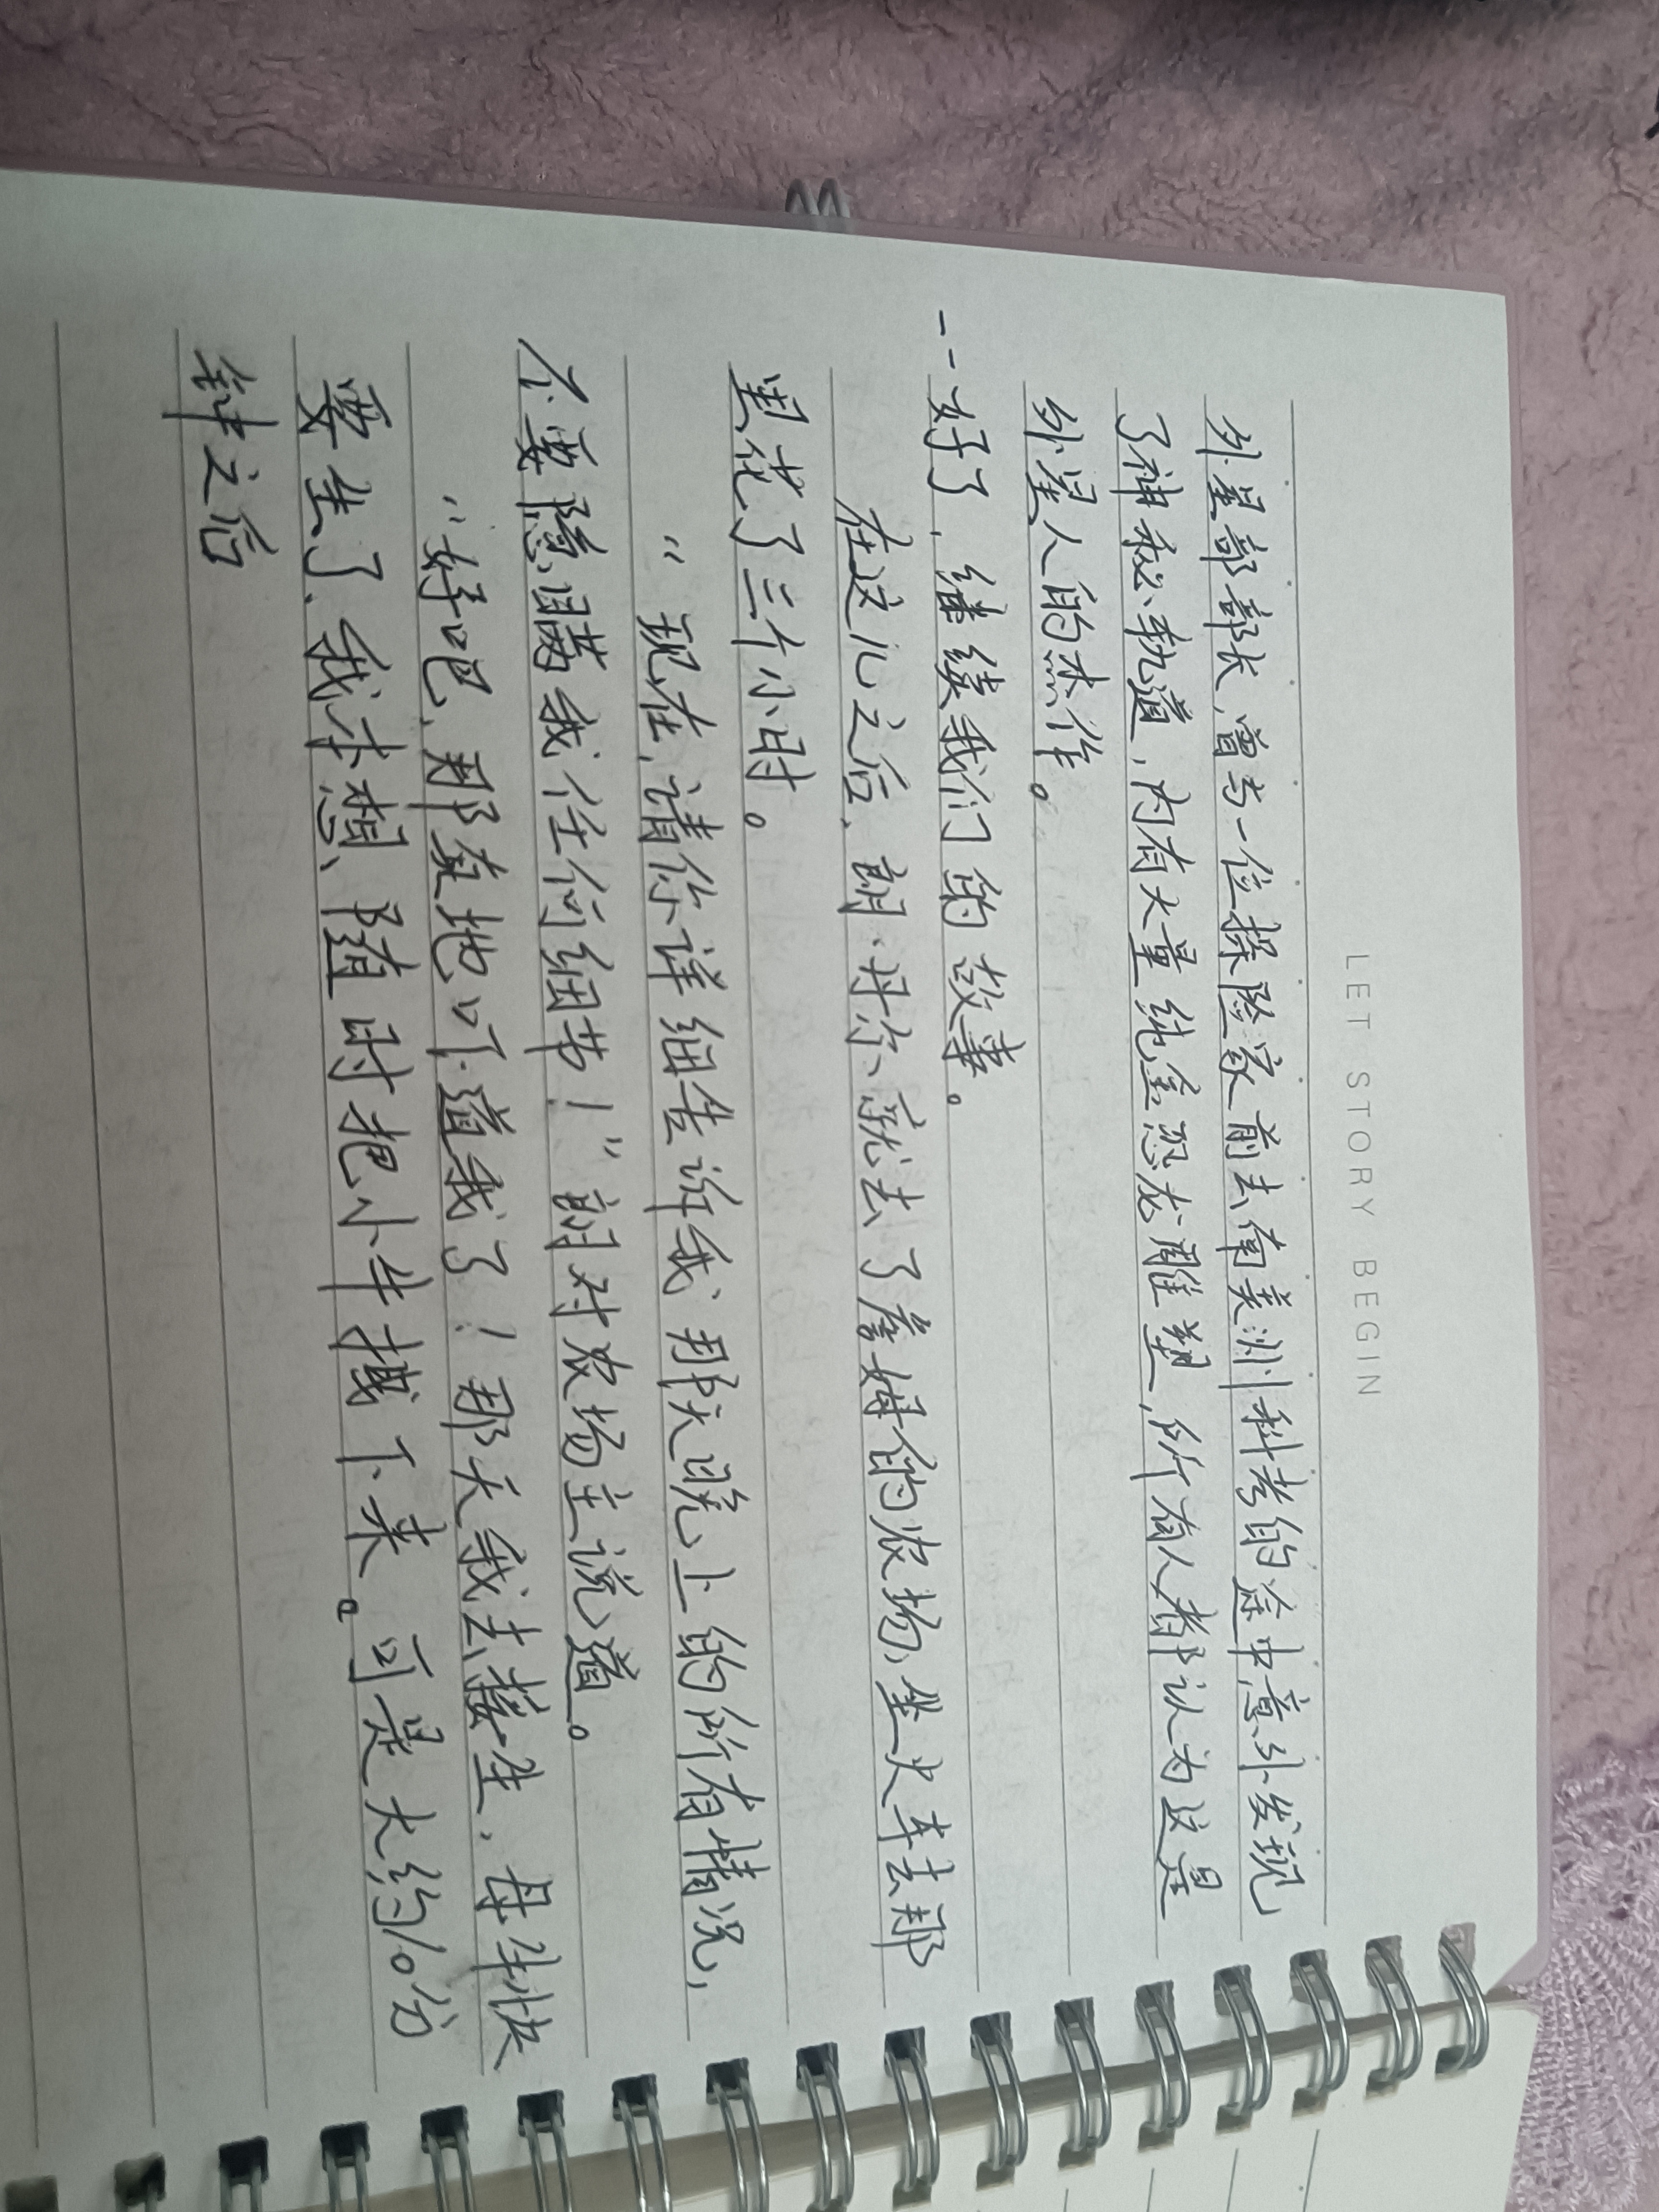 LET STORY BEGIN
外星部部长，曾与一位探险家前去南美洲科考的途中意外发现
了神秘轨道，内有大量纯金恐龙雕塑，所有人都认为这是
外星人的杰作。
--好了，继续我们的故事。
在这儿之后，朗·丹尔就去了詹姆的农场，坐火车去那
里花了三个小时。
“现在，请你详细告诉我那天晚上的所有情况，
不要隐瞒我任何细节！”朗对农场主说道。
“好吧，那真地吓道我了！那天我去接生，母牛快
要生了，我本想，随时把小牛拽下来。可是大约10分
钟之后